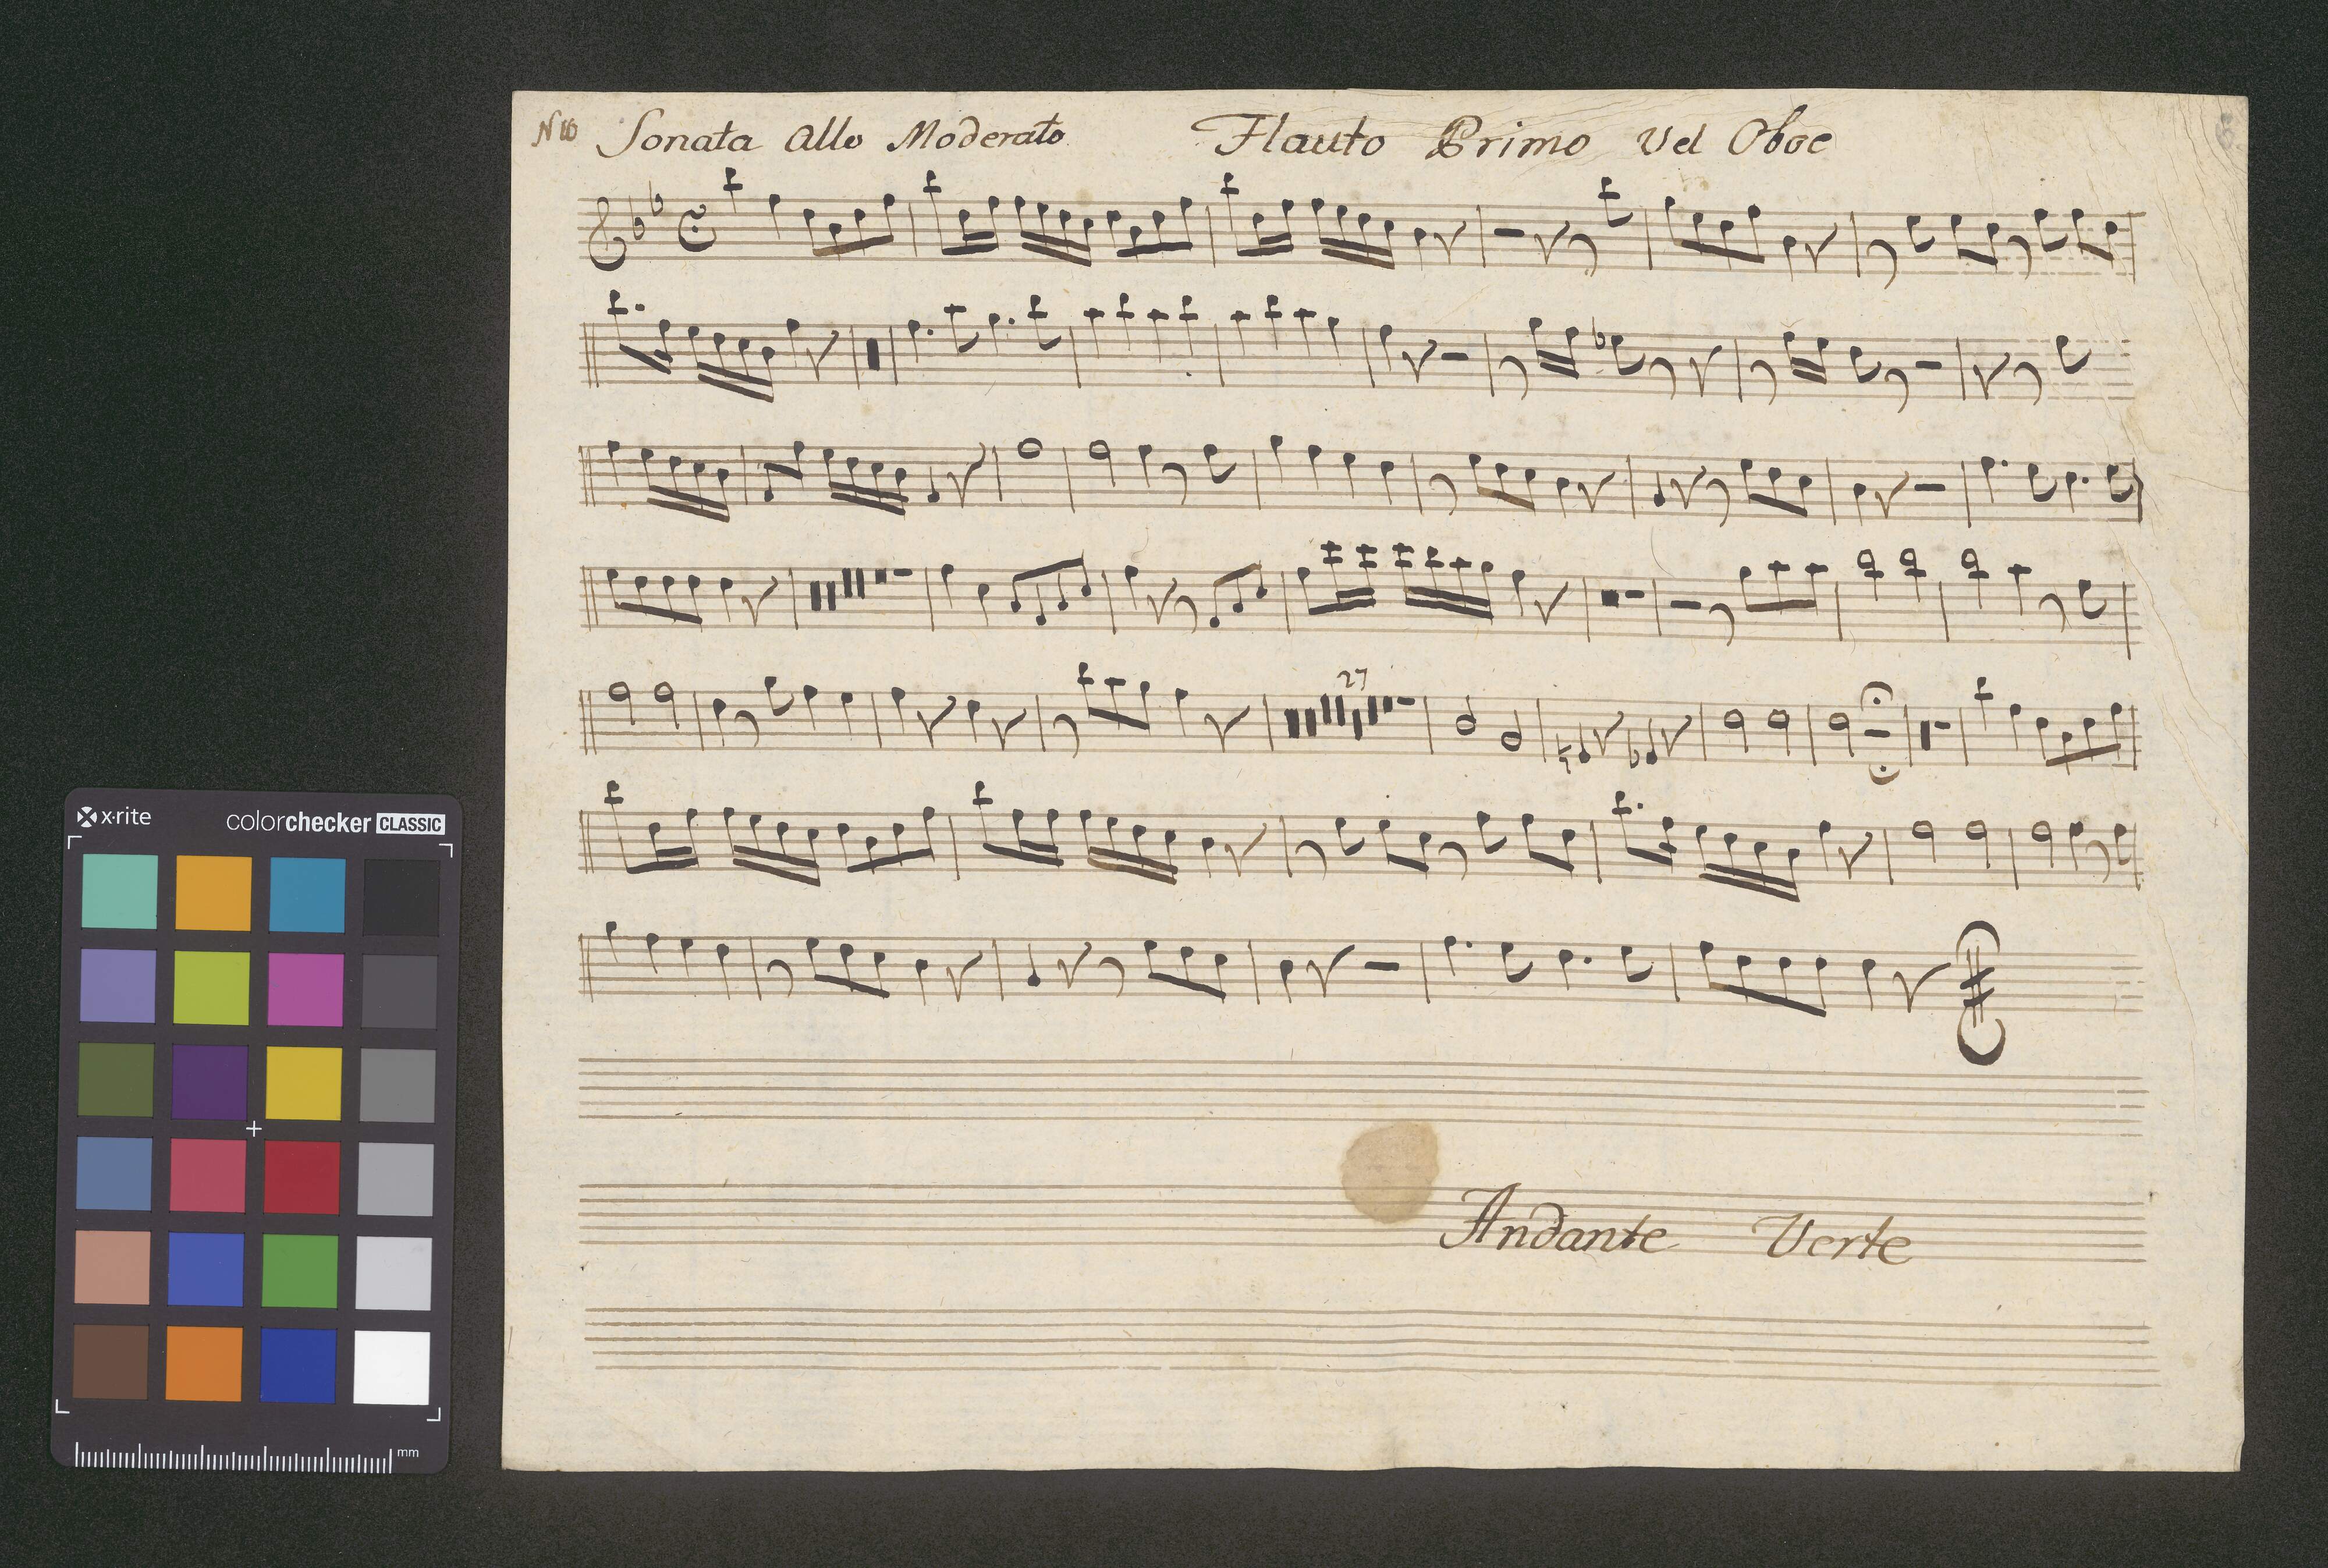 N 10 Sonata Allo Moderato Flauto Primo Vel Oboe
27
x-rite
colorchecker CLASSIC
Andante Verte
mm